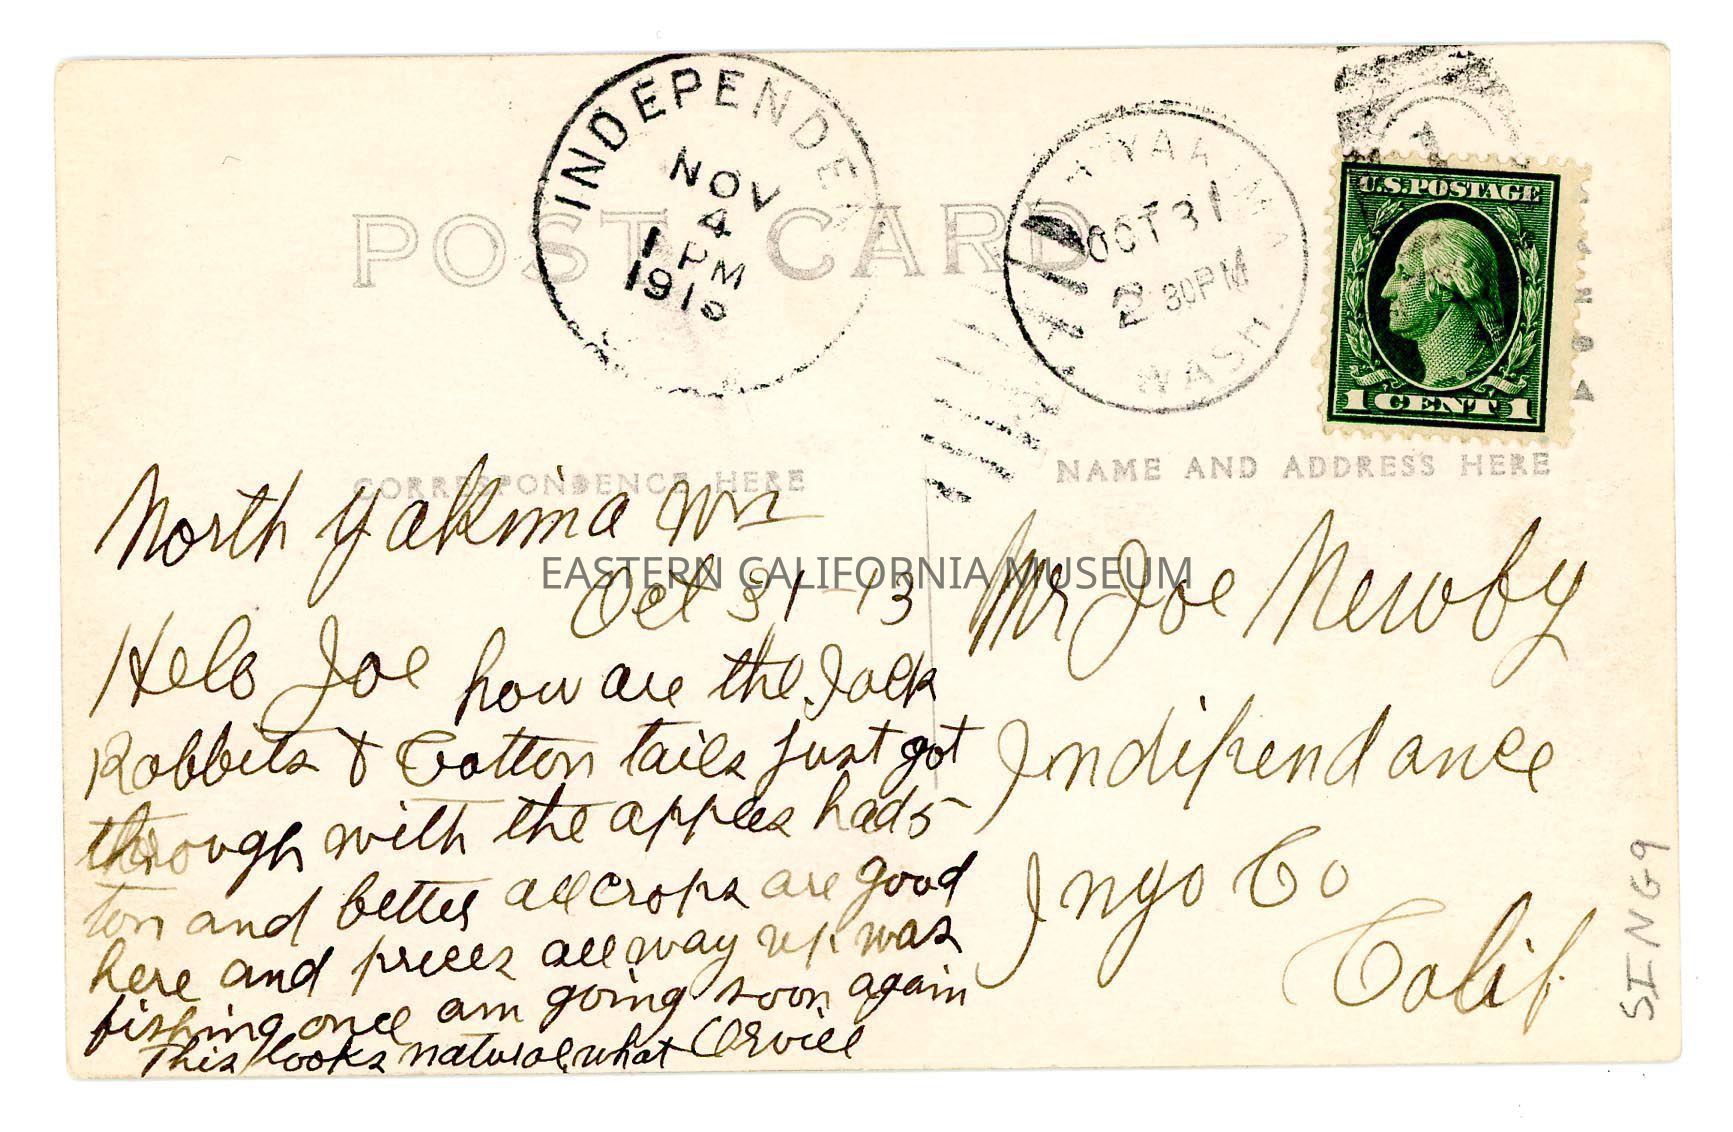 INDEPENDEN
NOV
4
1 PM
191
N. YAKIMA
OCT 31
2 30 PM
WASH.
U.S. POSTAGE
1 CENT 1
POST CARD
CORRESPONDENCE HERE
NAME AND ADDRESS HERE
North Yakima Wn
Oct 31-13
Helo Joe how are the Jack
Rabbits & Cotton tails just got
through with the apples had 5
ton and better all crops are good
here and prices all way up was
fishing once am going soon again
This looks natural what Orvill
Mr Joe Newby
Indipendance
Inyo Co
Calif.
EASTERN CALIFORNIA MUSEUM
SING9